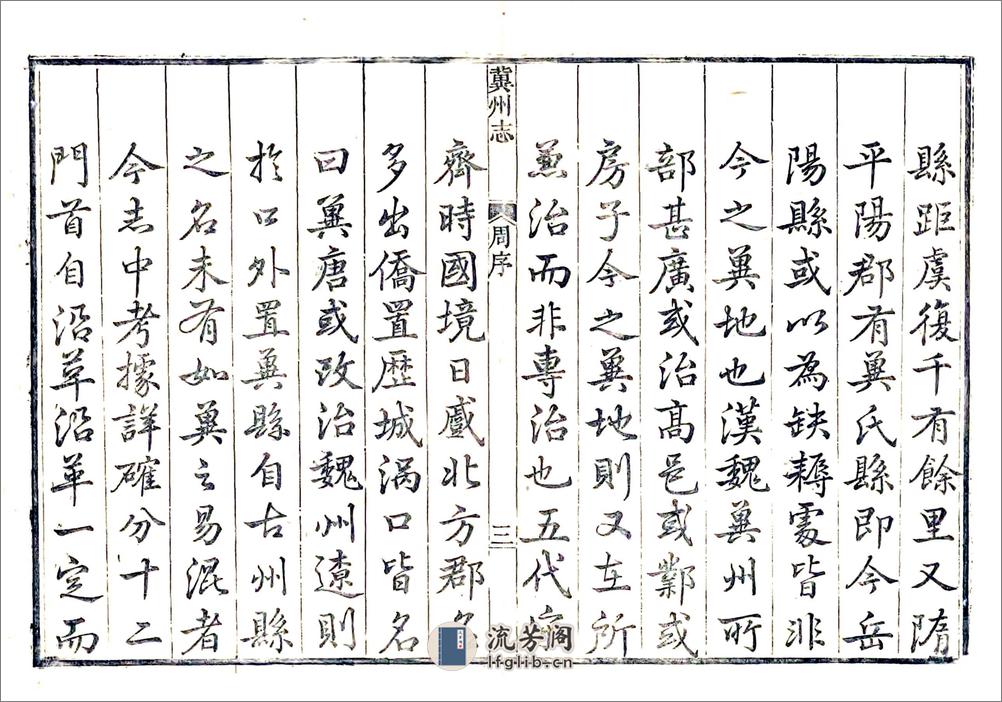 縣距虞復千有餘里又隋
平陽郡有冀氏縣即今岳
陽縣或以為缺耨處皆非
今之冀地也漢魏冀州所
部甚廣或治高邑或鄴或
房子今之冀地則又在所
兼治而非專治也五代
冀州志 周序 三
齊時國境日蹙北方郡
多出僑置歷城渦口皆名
曰冀唐或改治魏州遼則
於口外置冀縣自古州縣
之名未有如冀之易混者
今志中考據詳確分十二
門首自沿革沿革一定而
流芳阁
lfglib.cn